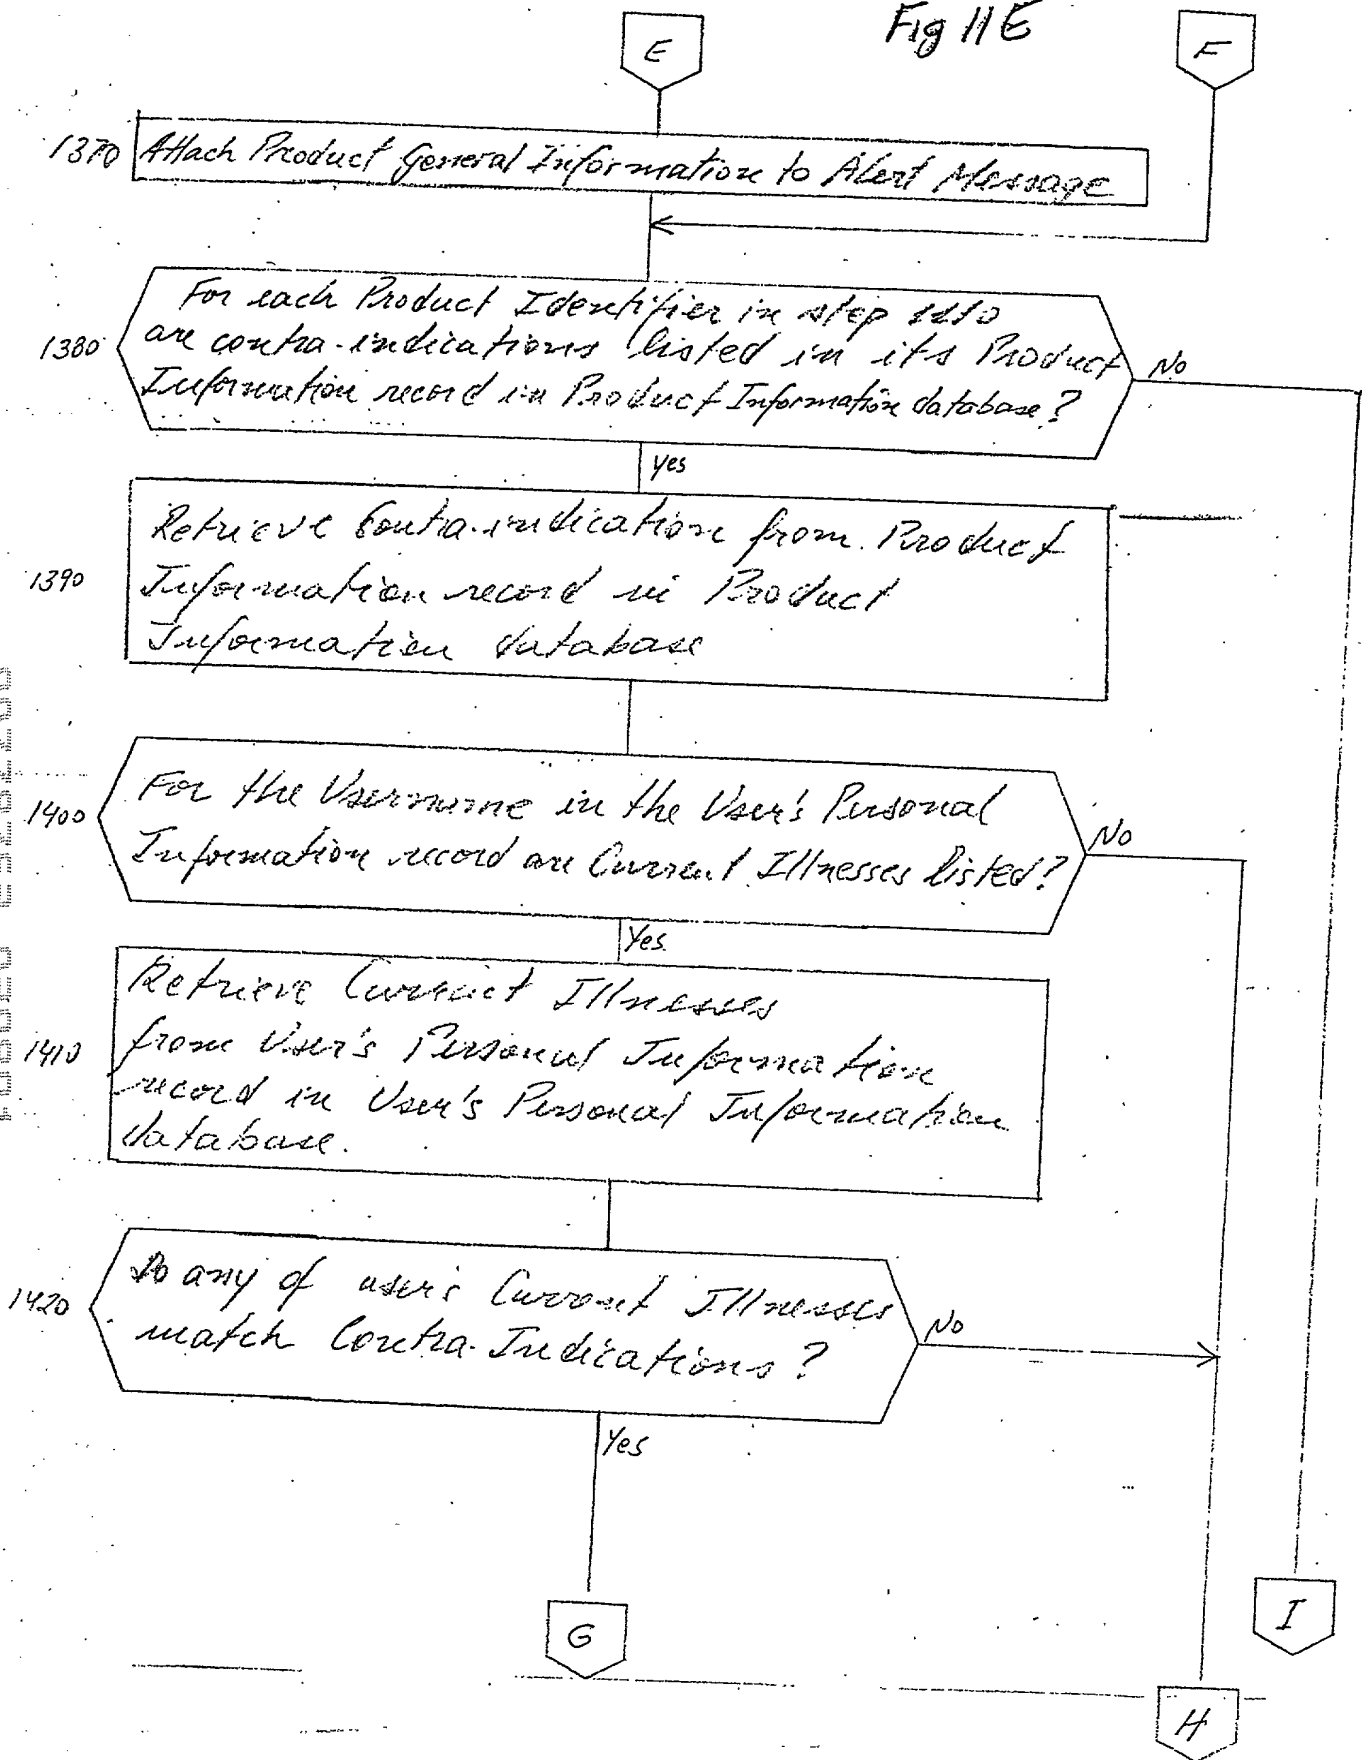 Fig 11E
E
F
1370 Attach Product General Information to Alert Message
For each Product Identifier in step
1380 are contra-indications listed in its Product
Information record in Product Information database?
No
Yes
Retrieve Contra-indication from Product
1390 Information record in Product
Information database
For the Username in the User's Personal
1400 Information record are Current Illnesses listed?
No
Yes
Retrieve Current Illnesses
1410 from User's Personal Information
record in User's Personal Information
database.
1420 Do any of user's Current Illnesses
match Contra-Indications?
No
Yes
G
I
H